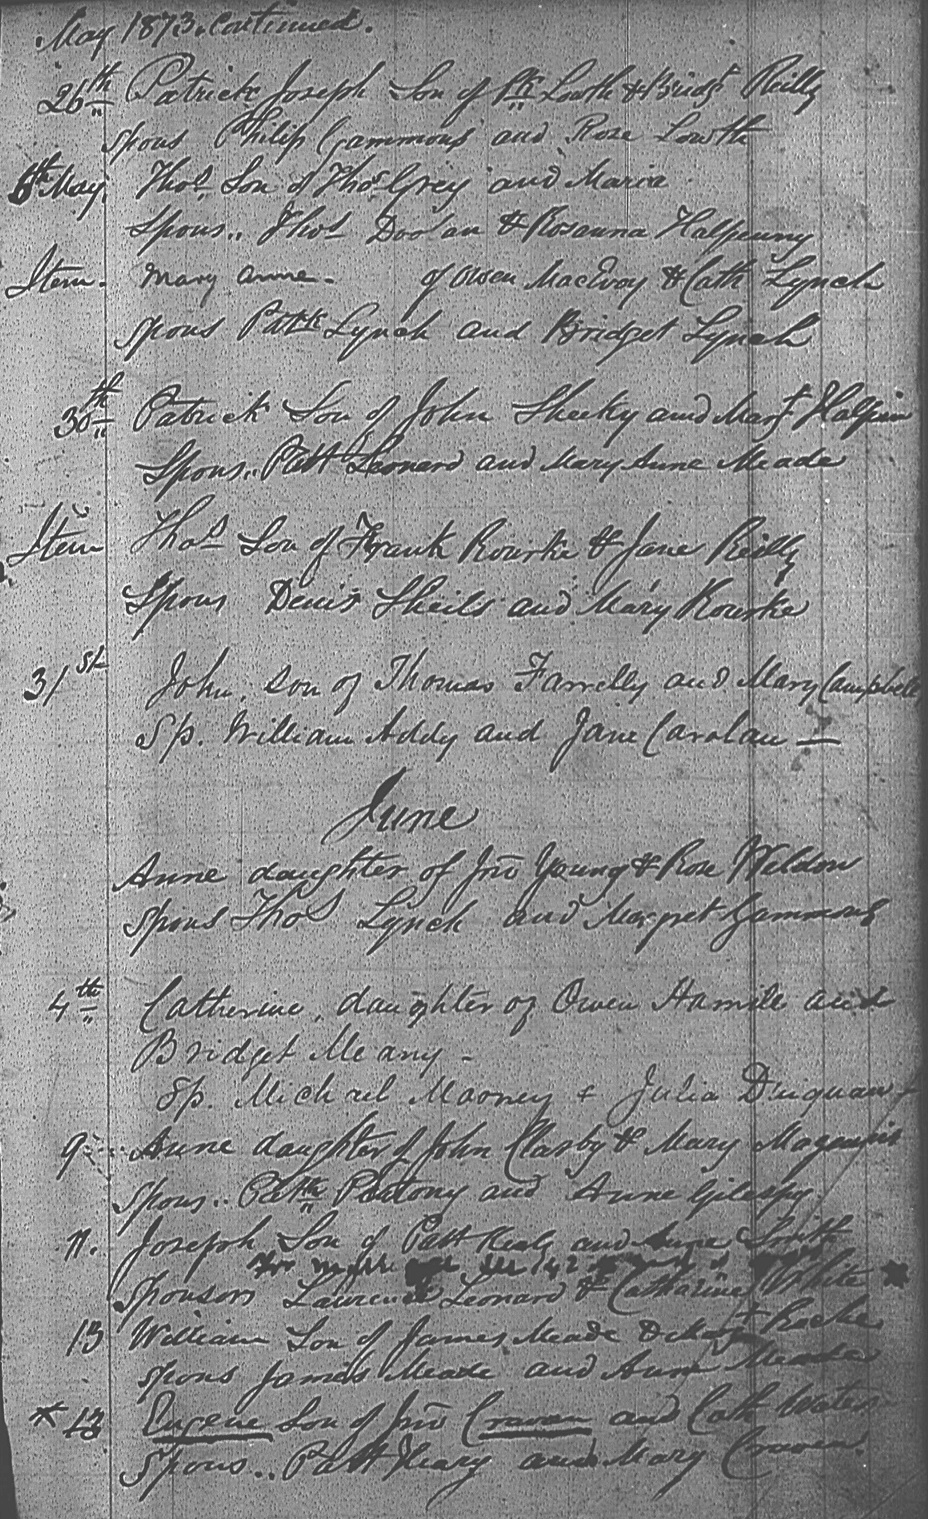 May 1873. continued.
26th Patrick Joseph Son of Pk Louth & Bridgt Reilly
Spons Philip Gammons and Rose Louth
6th May. Thos. Son of Thos Grey and Maria
Spons.. Thos Doolan & Rosanna Halpenny
Item. Mary Anne. of Owen MacEvoy & Cath Lynch
Spons Patk Lynch and Bridget Lynch
30th Patrick Son of John Sheeky and Margt Halpin
Spons.. Patt Leonard and Mary Anne Meade
Item Thos Son of Frank Rourke & Jane Reilly
Spons Denis Sheils and Mary Rourke
31st John, son of Thomas Farrelly and Mary Campbell
Sp. William Addy and Jane Carolan —
June
Anne daughter of Jno Young & Rose Weldon
Spons Thos Lynch and Margret Gammons
4th Catherine, daughter of Owen Hamill and
Bridget Meany -
Sp. Michael Mooney & Julia
9 Anne daughter of John Clasby & Mary Maguinis
Spons.. Patk Pentony and Anne Gilespy.
11. Joseph Son of Patt Kealy and Anne Smith
Sponsors Laurence Leonard & Catharine White
13 William Son of James Meade & Margt Roche
Spons James Meade and Anne Meade
* 13 Eugene Son of Jno Craven and Cath Waters
Spons.. Patt Heary and Mary Craven.